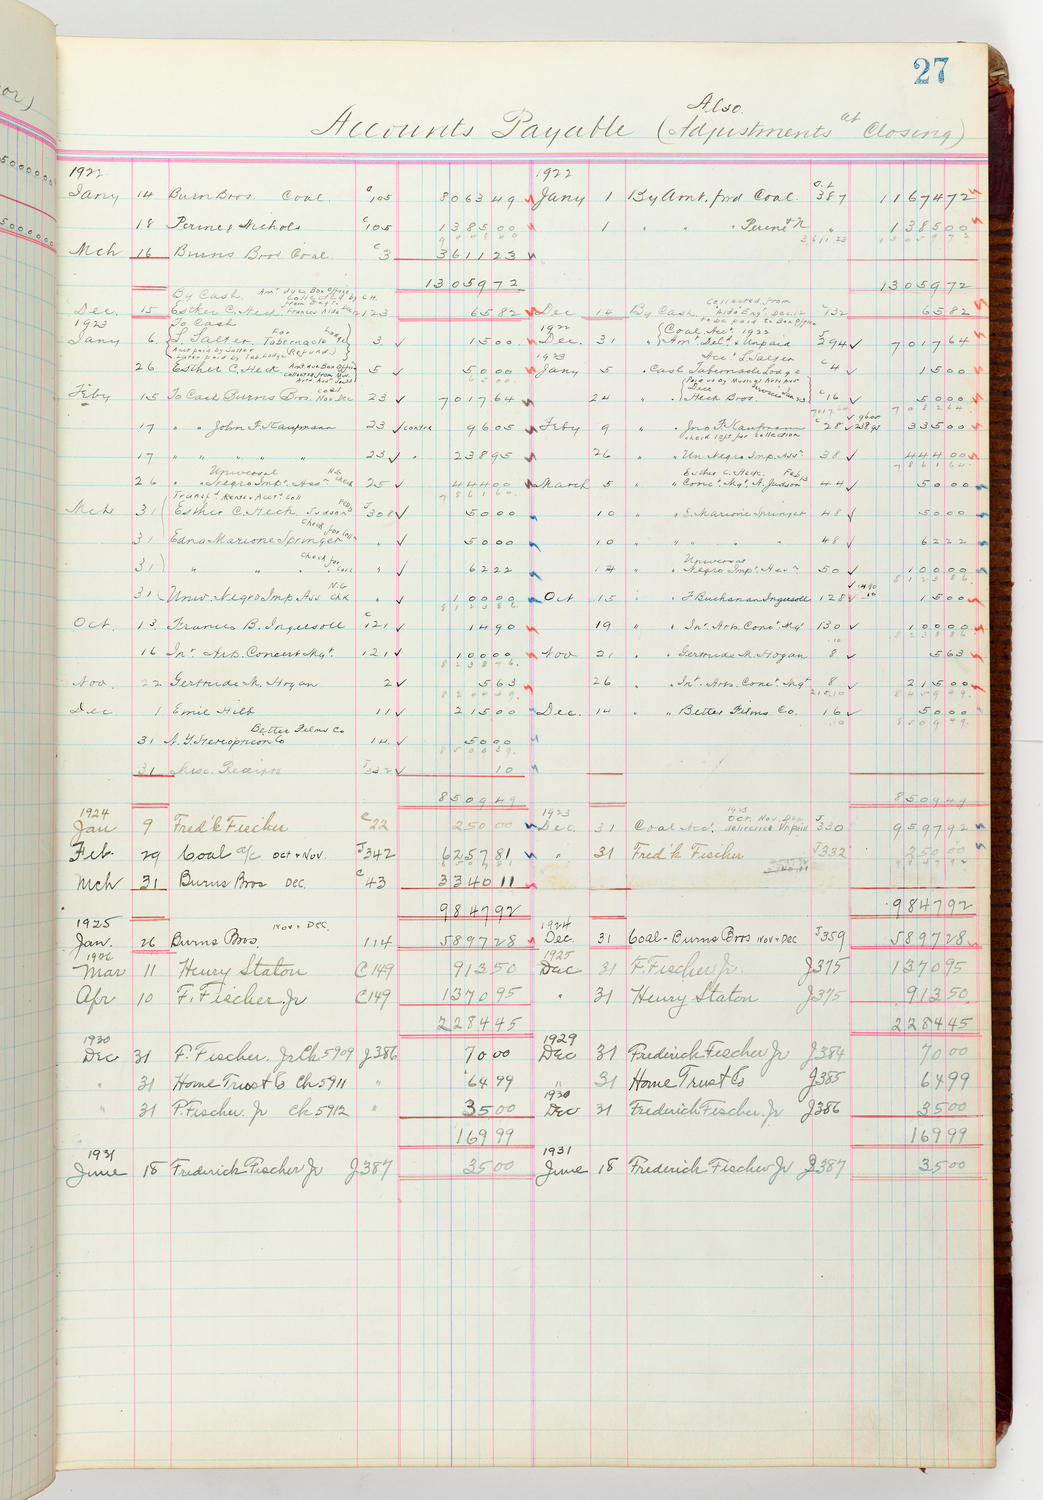 27
Also
Accounts Payable (Adjustments at Closing)
1922 1922
Jany 14 Burn Bros. Coal. C105 8063 49 Jany 1 By Amt. ford Coal. 387 11674 72
18 Perine & Nichols C105 1385 00 1 " " " Perine & N " 1385 00
Mch 16 Burns Bros Coal. C3 3611 23
3,611.23
13059 72 13059 72
By Cash. Amt due Box Office Collected by C.H.
Dec. 15 Esther C. Heck. 123 65 82 Dec 14 By Cash. Collected from "Aida Eng" Dec. 12 to be paid to Box Office C132 65 82
1923 To Cash 1922
Jany 6. L. Salzer. For Tabernacle Lodge (Refund.) 3 15 00 Dec. 31 Coal Acc't. 1922 Amt Del'd & Unpaid J294 7017 64
1923 Acc't L. Salzer
26 Esther C. Heck Amt due Box Office 5 50 00 Jany 5 " Cash Tabernacle Lodge C4 15 00
Feby 15 To Cash Burns Bros. Coal Nov Dec 23 7017 64 24 " " Heck Bros. C16 50 00
17 " " John F. Kaufmann 23 contra 96 05 Feby 9 " " Jno F. Kaufmann check left for collection C28 335 00
17 " " " " " 23 " 238 95 26 " " Un. Negro Imp. Ass'n 38 444 00
Universal
26 " " Negro Imp't. Ass'n. N.G. check 25 444 00 March 5 " " Esther C. Heck. Conc't. Mg't. A. Judson Feb 13 44 50 00
Mch 31 Esther C. Heck. Judson J308 50 00 10 " " E. Marione Springer 48 50 00
31 Edna Marione Springer Check for Coll'n " 50 00 10 " " " " " 48 62 22
31 " " " " Check for Coll " 62 22 14 " " Universal Negro Imp't. Ass'n. 50 100 00
31 Univ. Negro Imp Ass N.G. Chk " 100 00 Oct 15 " " F Buchanan Ingersoll 128 15 00
Oct. 13. Francis B. Ingersoll C121 14 90 19 " " Int. Arts Conc't Mg't 130 100 00
16 Int. Arts. Concert Mg't. 121 100 00 Nov 21 " " Gertrude M. Hogan 8 5 63
Nov. 22 Gertrude M. Hogan 2 5 63 26 " " Int. Arts. Conc't. Mg't 8 215 00
Dec. 1 Emil Hilb 11 215 00 Dec. 14 " " Better Films Co. 16 50 00
Better Films Co
31 N.Y. Stereopticon Co 14. 50 00
31 Misc. Receipts J322 10
8509 49 8509 49
1924 1923
Jan 9 Fred'k Fischer C22 250 00 Dec. 31 Coal Acc't. 1923 Oct. Nov. Dec. delivered Unpaid J330 9597 92
Feb. 29 Coal a/c Oct & Nov. J342 6257 81 " 31 Fred'k Fischer J332 250 00
Mch 31 Burns Bros Dec. C43 3340 11
9847 92 9847 92
1925 Nov & Dec. 1924
Jan. 26 Burns Bros. 114 5897 28 Dec. 31 Coal - Burns Bros Nov & Dec J359 5897 28
1906 1925
Mar 11 Henry Staton C149 913 50 Dec 31 F. Fischer Jr. J375 1370 95
Apr 10 F. Fischer, Jr C149 1370 95 " 31 Henry Staton J375 913 50
2284 45 2284 45
1930 1929
Dec 31 F. Fischer. Jr Ck 5909 J386 70 00 Dec 31 Frederick Fischer Jr J384 70 00
" 31 Home Trust Co Ck 5911 " 64 99 " 31 Home Trust Co J385 64 99
1930
" 31 F. Fischer. Jr Ck 5912 " 35 00 Dec 31 Frederick Fischer. Jr J386 35 00
169 99 169 99
1931 1931
June 18 Frederick Fischer Jr J387 35 00 June 18 Frederick Fischer Jr J387 35 00